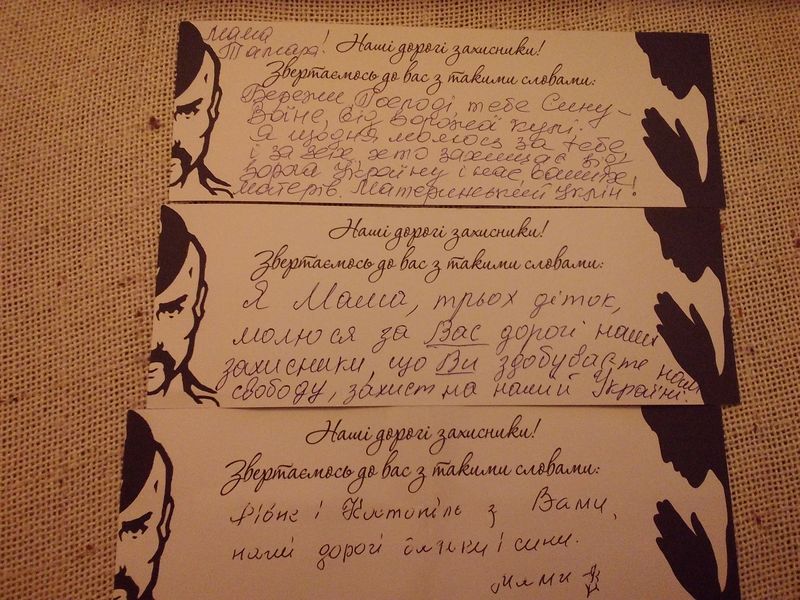 Мама
Тамара!
Наші дорогі захисники!
Звертаємось до вас з такими словами:
Бережи Господі тебе Сину-
Воїне, від ворожої кулі.
Я щодня молюсь за тебе
і за всіх хто захищає від
ворога Україну і нас ваших
матерів. Материнський уклін!
Наші дорогі захисники!
Звертаємось до вас з такими словами:
Я Мама, трьох діток,
молюся за Вас дорогі наші
захисники, що Ви здобуваєте нам
свободу, захист на нашій Україні.
Наші дорогі захисники!
Звертаємось до вас з такими словами:
Рівне і Костопіль з Вами,
наші дорогі і сини.